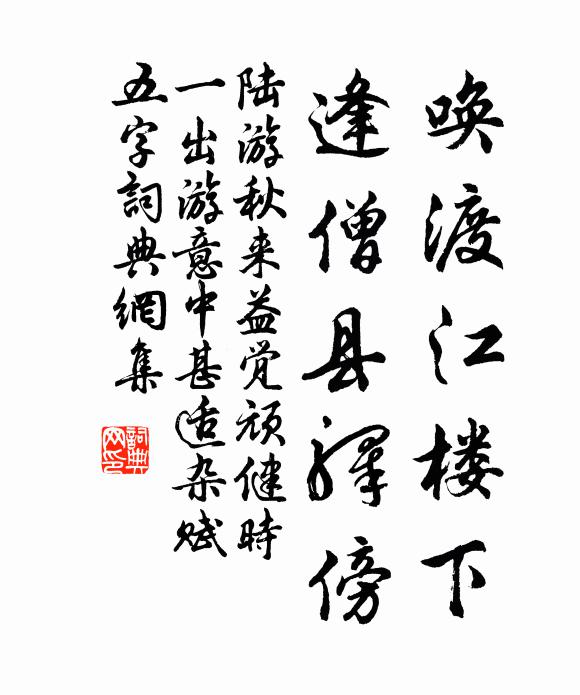 唤渡江楼下
逢僧县驿傍
陆游秋来益觉顽健時
一出游意中甚适杂赋
五字詞典網集
詞典网印